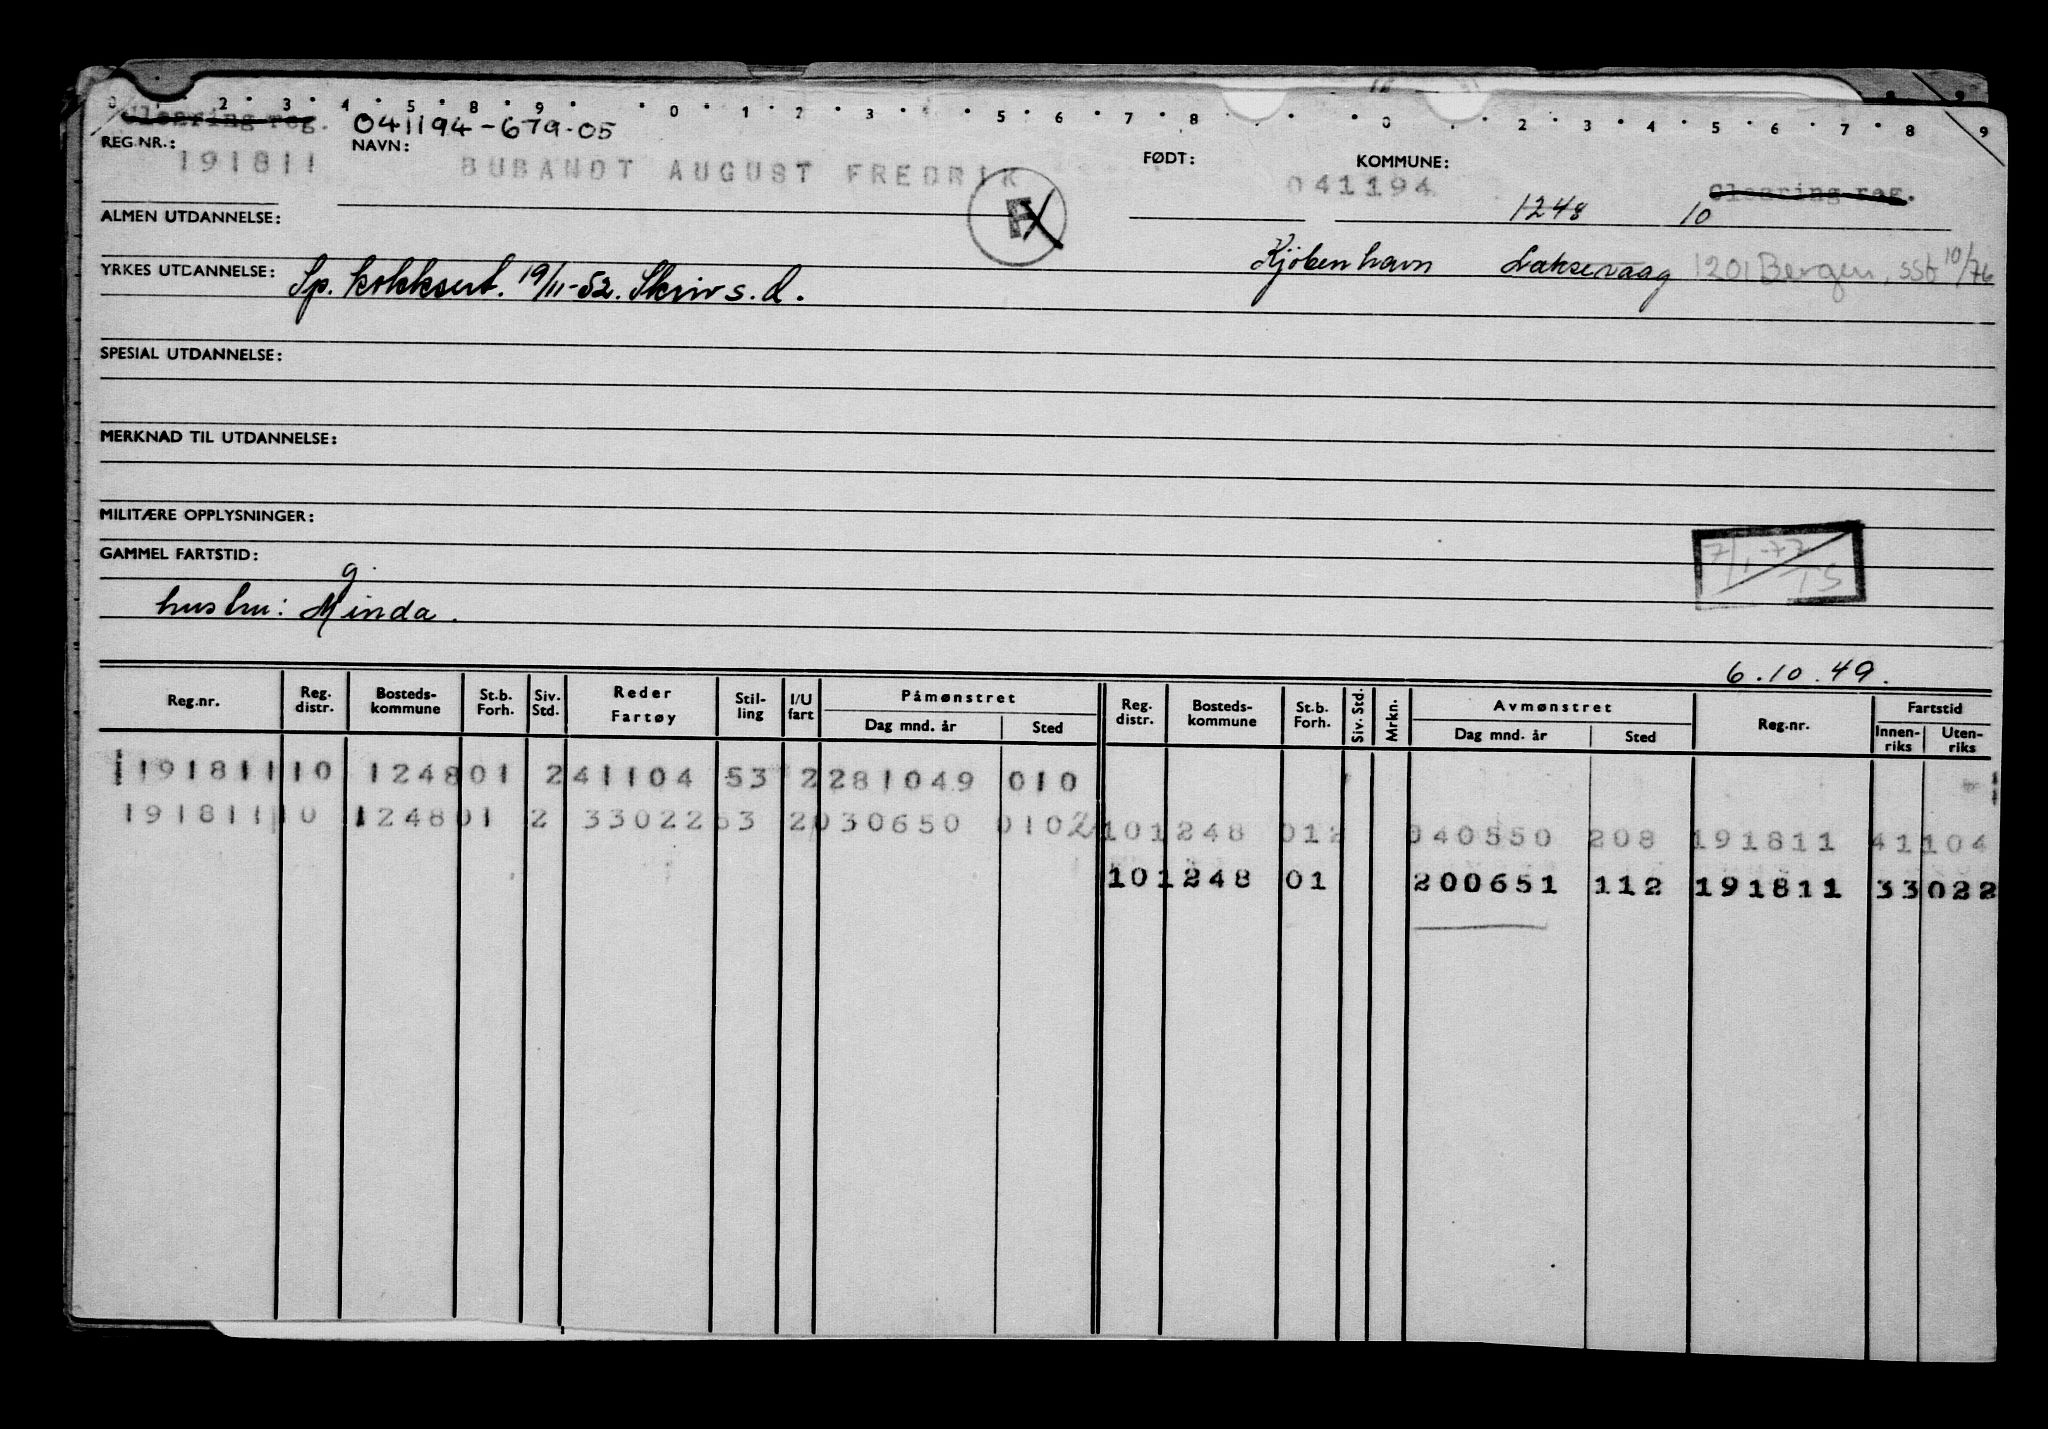 0 1 2 3 4 5 8 9 0 1 2 3 4 5 6 7 8 0 2 3 4 5 6 7 8 9
Clearing reg. 041194-679.05
REG.NR.: NAVN: FØDT: KOMMUNE:
191811 BUBANDT AUGUST FREDRIK 041194 Clearing reg.
ALMEN UTDANNELSE: F 1248 10
YRKES UTDANNELSE: Sp. kokksert. 19/11-52. Skriv s.d. Kjöbenhavn Laksevaag 1201 Bergen, SSB 10/76
SPESIAL UTDANNELSE:
MERKNAD TIL UTDANNELSE:
MILITÆRE OPPLYSNINGER:
GAMMEL FARTSTID: 7/1-77 TS
g.
hustru: Minda.
6.10.49.
Reg.nr. Reg. distr. Bosteds-kommune St.b. Forh. Siv. Std. Reder Fartøy Stil-ling I/U fart Påmønstret Dag mnd. år Sted Reg. distr. Bosteds-kommune St.b. Forh. Siv. Std. Mrkn. Avmønstret Dag mnd. år Sted Reg.nr. Fartstid Innen-riks Uten-riks
191811 10 1248 01 2 41104 53 2 281049 010
191811 10 1248 01 2 33022 63 2 030650 0102 10 1248 012 040550 208 191811 41104
10 1248 01 200651 112 191811 33022